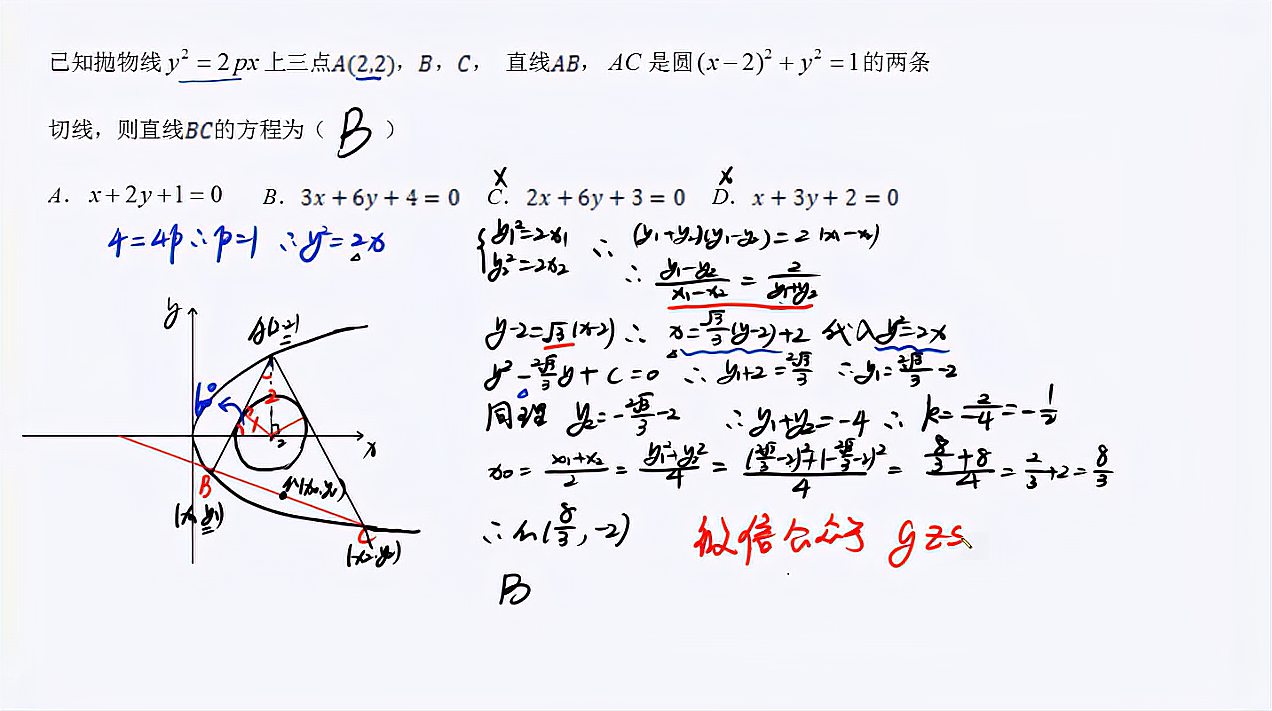 已知抛物线 y² = 2px 上三点A(2,2)，B，C， 直线AB， AC 是圆(x−2)² + y² = 1的两条
切线，则直线BC的方程为（ B ）
A． x+2y+1=0 B．3x+6y+4=0 C．2x+6y+3=0 D．x+3y+2=0
x x
4=4p ∴p=1 ∴y²=2x
{y₁²=2x₁ y₂²=2x₂ ∴ (y₁+y₂)(y₁−y₂)=2(x₁−x₂)
∴ (y₁−y₂)/(x₁−x₂) = 2/(y₁+y₂)
y−2=√3(x−2) ∴ x=√3/3(y−2)+2 代入y²=2x
y²−2√3/3y+C=0 ∴y₁+2=2√3/3 ∴y₁=2√3/3−2
同理 y₂=−2√3/3−2 ∴y₁+y₂=−4 ∴ k=2/−4=−1/2
x₀=(x₁+x₂)/2=(y₁²+y₂²)/4=((2√3/3−2)²+(−2√3/3−2)²)/4=(8/3+8)/4=2/3+2=8/3
∴M(8/3,−2)
B
微信公众号 gzs
y
A(2,2)
60°
2
1
2
x
B
(x₁,y₁)
M(x₀,y₀)
C
(x₂,y₂)